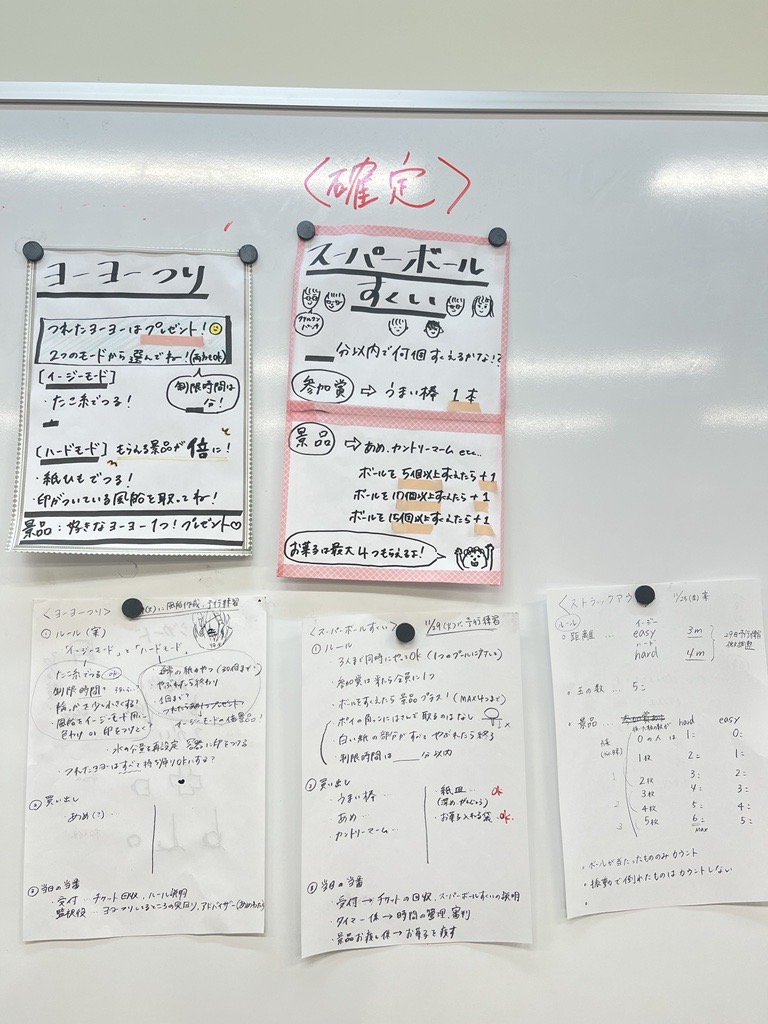 〈確定〉
ヨーヨーつり
つれたヨーヨーはプレゼント！
2つのモードから選んでね！(両方もOK)
[イージーモード]
制限時間は
分！
・たこ糸でつる！
[ハードモード] もらえる景品が倍に！
・紙ひもでつる！
・印がついている風船を取ってね！
景品：好きなヨーヨー1つ！プレゼント♡
スーパーボール
すくい
分以内で何個すくえるかな！？
参加賞 ⇨ うまい棒 1本
景品 ⇨ あめ、カントリーマーム etc..
ボールを5個以上すくえたら+1
ボールを10個以上すくえたら+1
ボールを15個以上すくえたら+1
お菓子は最大4つもらえるよ！
〈ヨーヨーつり〉
風船作成、予行練習
① ルール(案)
「イージーモード」と「ハードモード」
たこ糸でつる ok
制限時間？
やぶれたら終わり
1回まで？
風船をイージーモード用に
色わり or 印をつけとく
イージーモードの倍景品！
・つれたヨーヨーはすべて持ち帰りOKにする？
② 買い出し
・あめ(？)...
③ 当日の当番
・受付 ... チケット回収、ルール説明
監視役
〈スーパーボールすくい〉 11/29(水)に予行練習
① ルール
・3人まで同時にやってOK (1つのプールに対して)
・参加賞は来たら全員に1つ
・ボールをすくえたら景品プラス！(MAX4つまで)
・白い紙の部分がすべてやぶれたら終了
・制限時間は____分以内
② 買い出し
・うまい棒 ...
・あめ ...
・カントリーマーム ...
・紙皿 ... ok
・お菓子入れる袋 ... ok
③ 当日の当番
・受付 → チケットの回収、スーパーボールすくいの説明
・タイマー係 → 時間の管理、審判
・景品お渡し係 → お菓子を渡す
〈ストラックアウト〉
ルール
○ 距離 ...
イージー
easy 3m
ハード
hard 4m
○ 玉の数 ... 5コ
○ 景品 ... hard easy
0の人は 1コ 0コ
1枚 2コ 1コ
2枚 3コ 2コ
3枚 4コ 3コ
4枚 5コ 4コ
5枚 6コ 5コ
max
・ボールが当たったもののみカウント
・振動で倒れたものはカウントしない